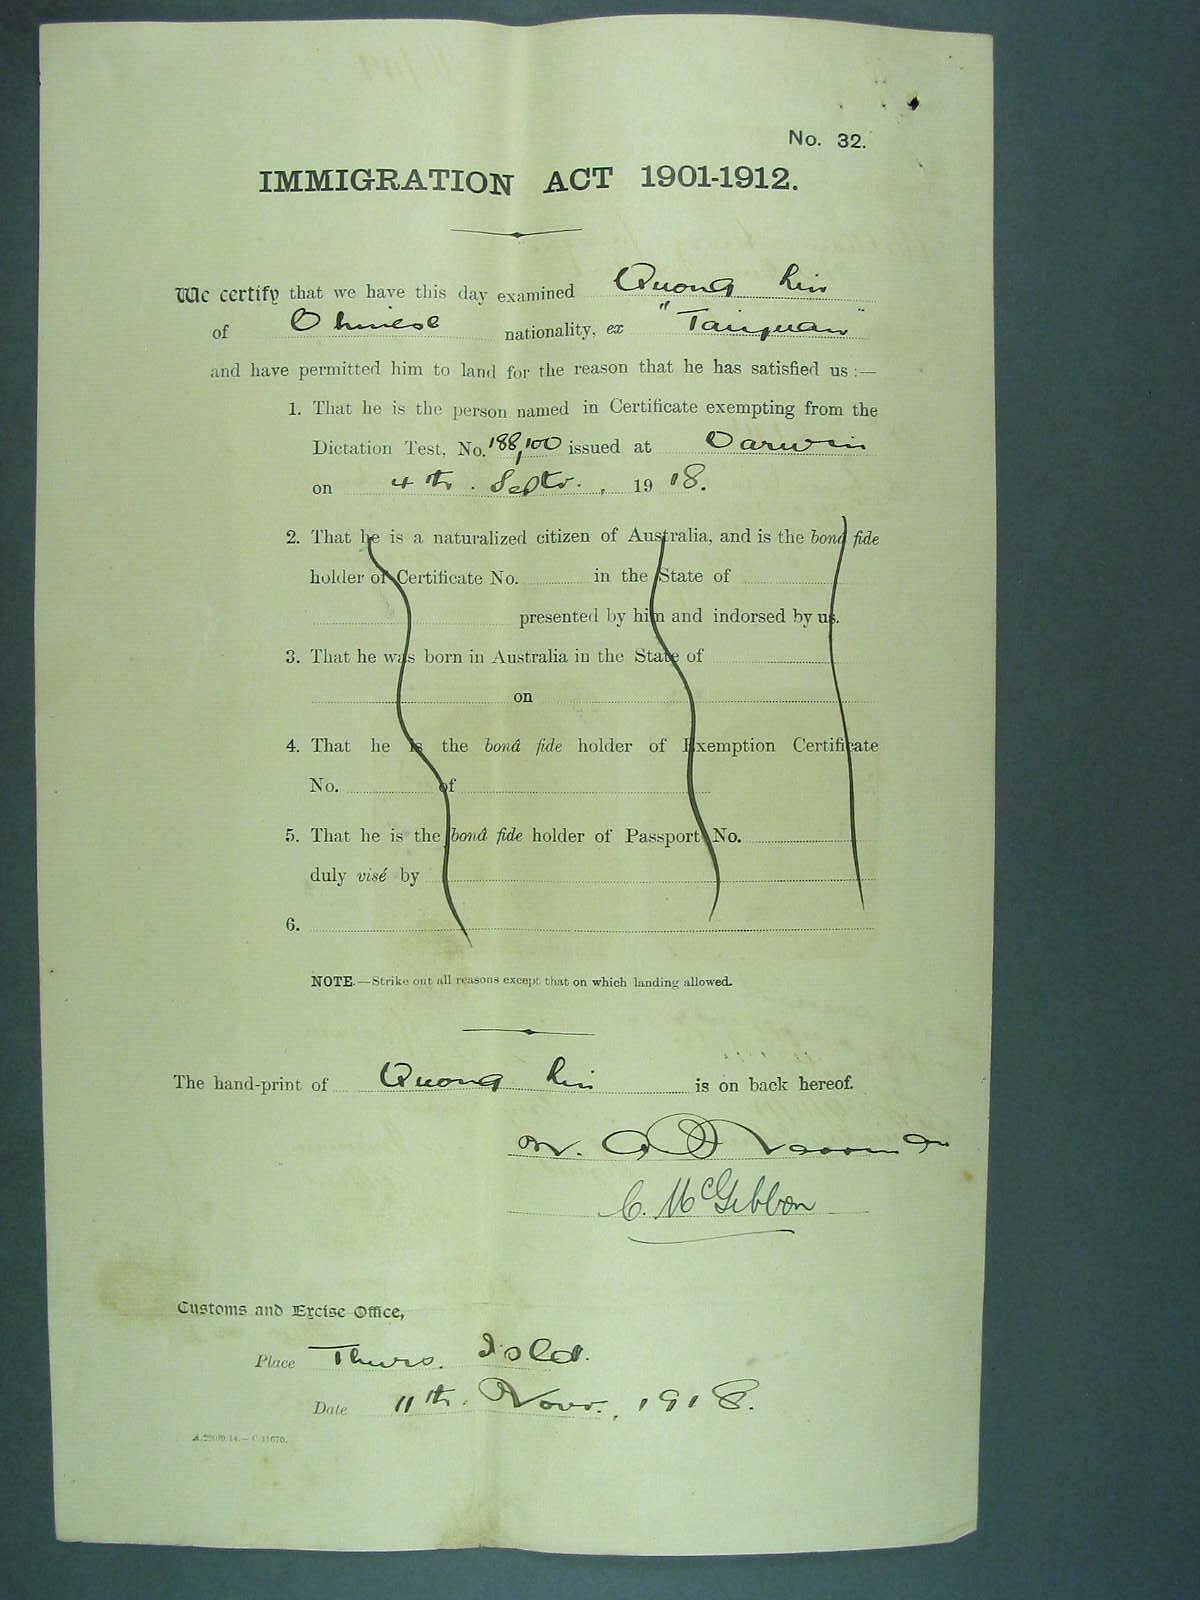 No. 32.
IMMIGRATION ACT 1901-1912.
We certify that we have this day examined Quong Lin
of Chinese nationality, ex "Taiyuan"
and have permitted him to land for the reason that he has satisfied us :—
1. That he is the person named in Certificate exempting from the
Dictation Test, No. 188,100 issued at Darwin
on 4th. Septr. , 1918.
2. That he is a naturalized citizen of Australia, and is the bonâ fide
holder of Certificate No. in the State of
presented by him and indorsed by us.
3. That he was born in Australia in the State of
on
4. That he is the bonâ fide holder of Exemption Certificate
No. of
5. That he is the bonâ fide holder of Passport No.
duly visé by
6.
NOTE.—Strike out all reasons except that on which landing allowed.
The hand-print of Quong Lin is on back hereof.
C. McGibbon
Customs and Excise Office,
Place Thurs. Isld.
Date 11th. Novr. , 1918.